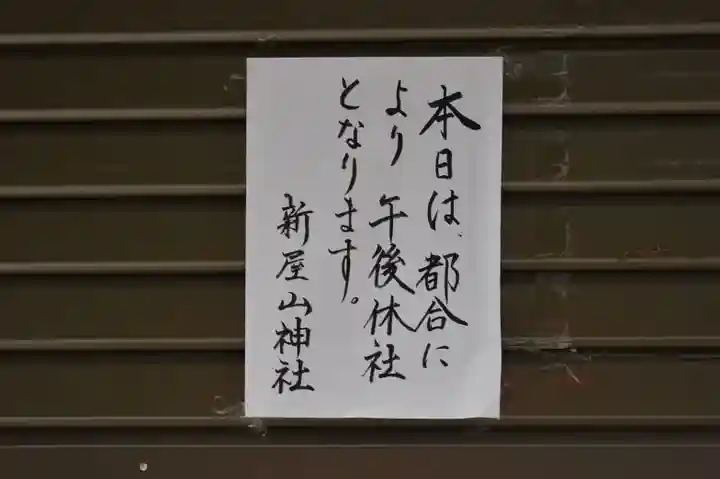 本日は、都合に
より午後休社
となります。
新屋山神社